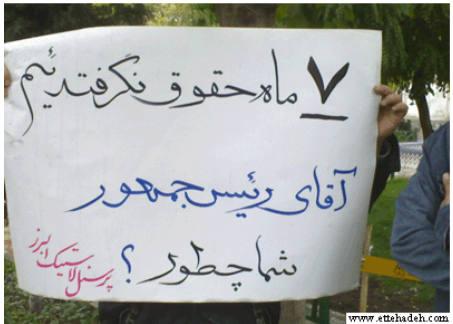 ۷ ماه حقوق نگرفته ئیم
آقای رئیس جمهور
شما چطور ؟
پرسنل لاستیک البرز
www.ettehadeh.com